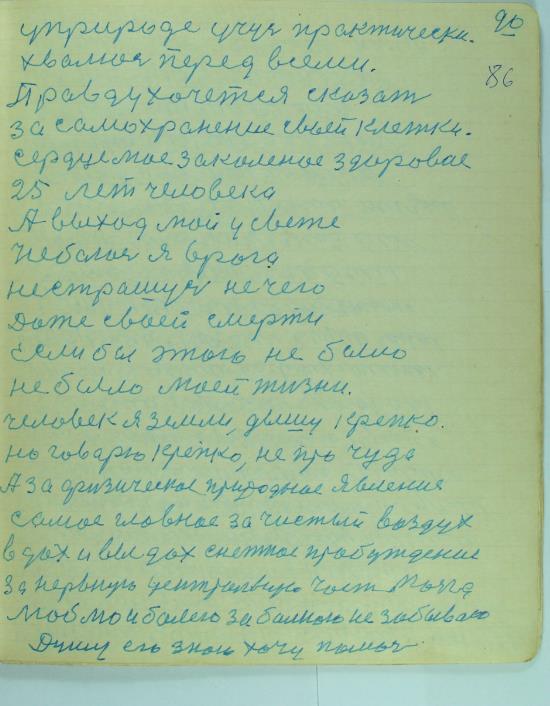 90
86
уприроде учуя практически.
хвалюся перед всеми.
Правду хочется сказат
за самохранение своей клетки.
сердце мое закаленое здоровае
25 лет человека
А выход мой у свете
Небалоя я врага
нестрашуся нечего
Даже своей смерти
Если бы этого не было
не было моей жизни.
человек я земли, дышу крепко.
но говарю крепко, не про чуда
А за физическое природное явление
самое главное за чистый воздух
вдох и выдох снежное пробуждение
за нервную центральную часть мозга
за балною не забываю
Душу его знаю хочу помоч